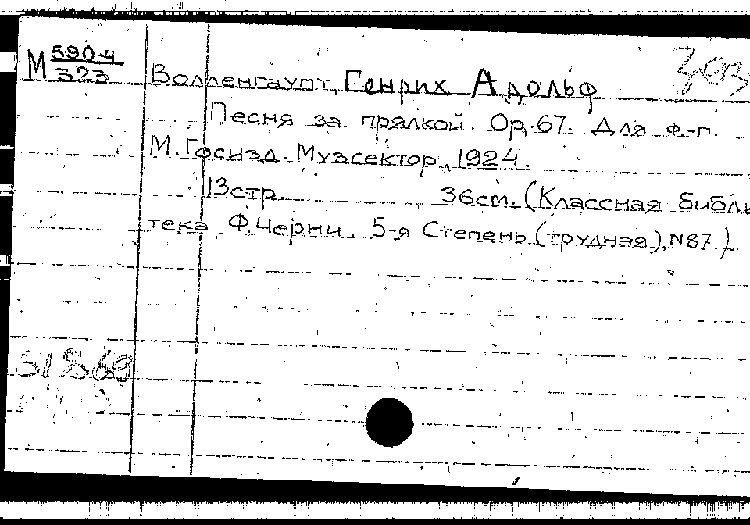 М 590-4/323
Волленгаупт, Генрих Адольф
303
Песня за прялкой. Op. 67. Для ф-п.
М. Госизд. Музсектор, 1924.
13 стр. 36 см. (Классная библи
тека Ф. Черни. 5-я Степень (трудная), N87).
51868